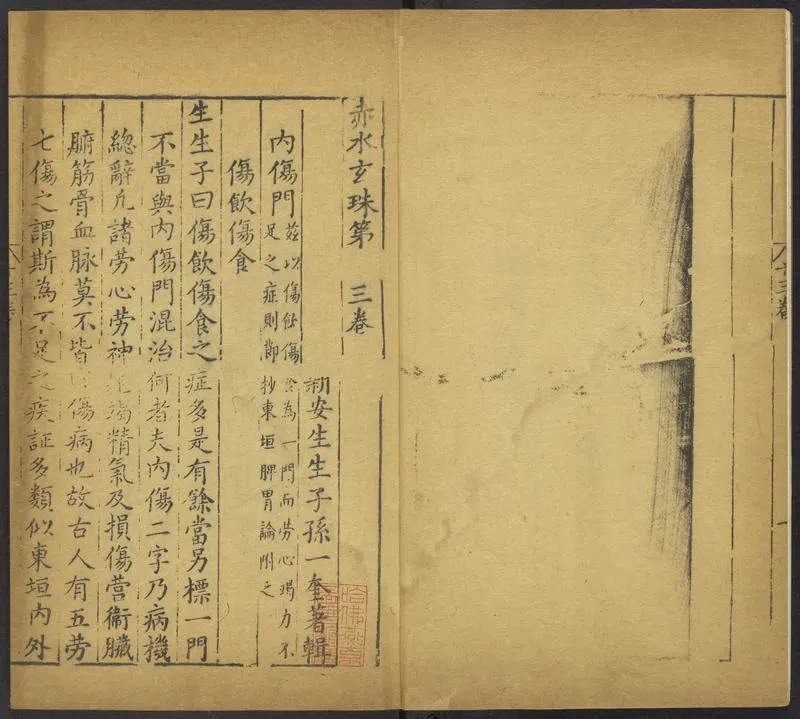 十三卷
一
赤水玄珠第 三卷
新安生生子孫一奎著輯
內傷門
茲以傷飲傷食為一門而勞心竭力不
足之症則節抄東垣脾胃論附之
傷飲傷食
生生子曰傷飲傷食之症多是有餘當另標一門
不當與內傷門混治何者夫內傷二字乃病機
總辭凡諸勞心勞神竭精氣及損傷營衛臟
腑筋骨血脉莫不皆傷病也故古人有五勞
七傷之謂斯為不足之疾証多類似東垣內外